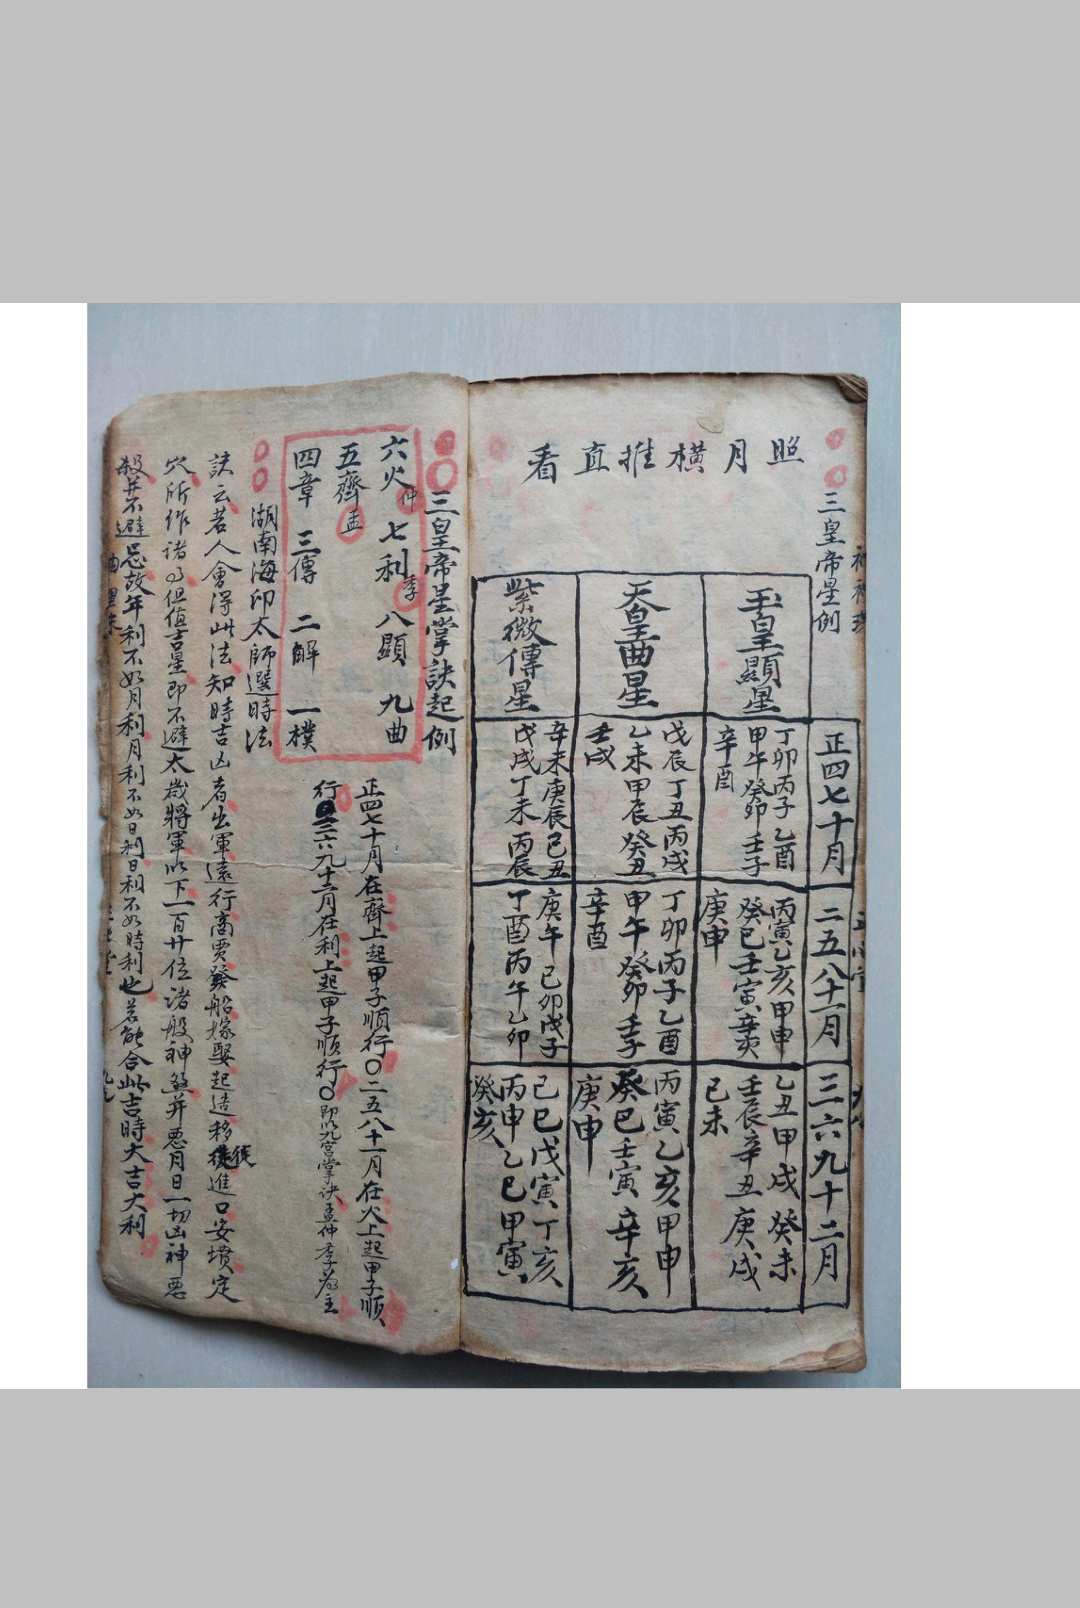 照月橫推直看
三皇帝星例
正四七十月
二五八十一月
三六九十二月
玉皇顯星
丁卯丙子乙酉
甲午癸卯壬子
辛酉
丙寅乙亥甲申
癸巳壬寅辛亥
庚申
乙丑甲戌癸未
壬辰辛丑庚戌
己未
天皇曲星
戊辰丁丑丙戌
乙未甲辰癸丑
壬戌
丁卯丙子乙酉
甲午癸卯壬子
辛酉
丙寅乙亥甲申
癸巳壬寅辛亥
庚申
紫微傳星
辛未庚辰己丑
戊戌丁未丙辰
庚午己卯戊子
丁酉丙午乙卯
己巳戊寅丁亥
丙申乙巳甲寅
癸亥
三皇帝星掌訣起例
六火仲七利季八顯九曲
五齊孟
四章三傳二解一樸
正四七十月在齊上起甲子順行〇二五八十一月在火上起甲子順
行三六九十二月在利上起甲子順行〇即以九宮掌訣孟仲季為主
湖南海印太師選時法
訣云若人會得此法知時吉凶者出軍遠行商賈發船嫁娶起造移徙進口安墳定
穴所作諸事但值吉星即不避太歲將軍以下一百廿位諸般神煞并惡月日一切凶神惡
殺并不避忌故年利不如月利月利不如日利日利不如時利也若能合此吉時大吉大利